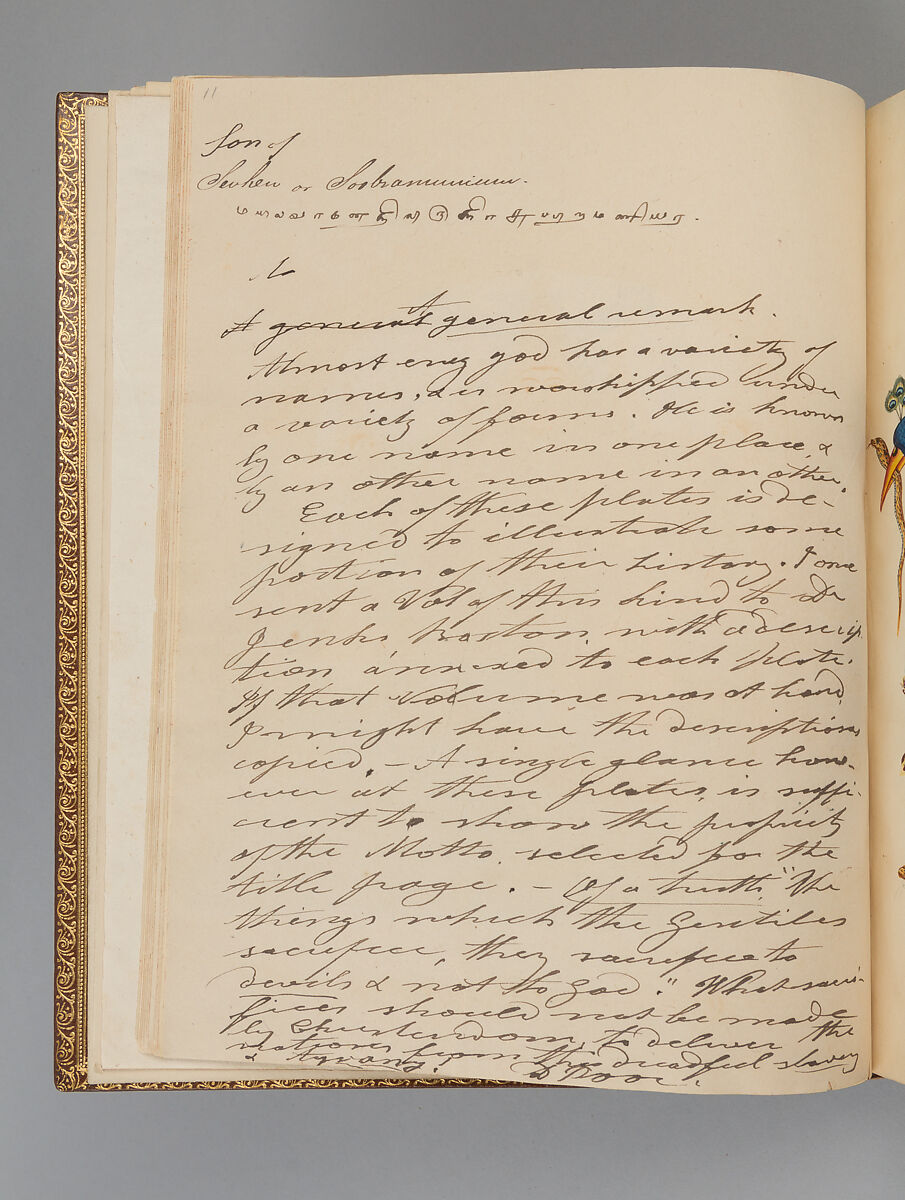 11
Son of
or Soobramunium.
A general general remark.
Almost every god has a variety of
names, & is worshipped under
a variety of forms. He is known
by one name in one place, &
by an other name in an other.
Each of these plates is de-
signed to illustrate some
portion of their history. I once
sent a Vol of this kind to Dr
Jenks Boston, with a descrip
tion annexed to each plate.
If that Volume was at hand,
I might have the descriptions
copied. – A single glance how-
ever at these plates, is suffi-
cient to show the propriety
of the Motto selected for the
title page. – Of a truth "The
things which the Gentiles
sacrifice, they sacrifice to
devils & not to God." What sacri-
fices should not be made
by Christendom, to deliver the
nations from the dreadful slavery
& tyranny.